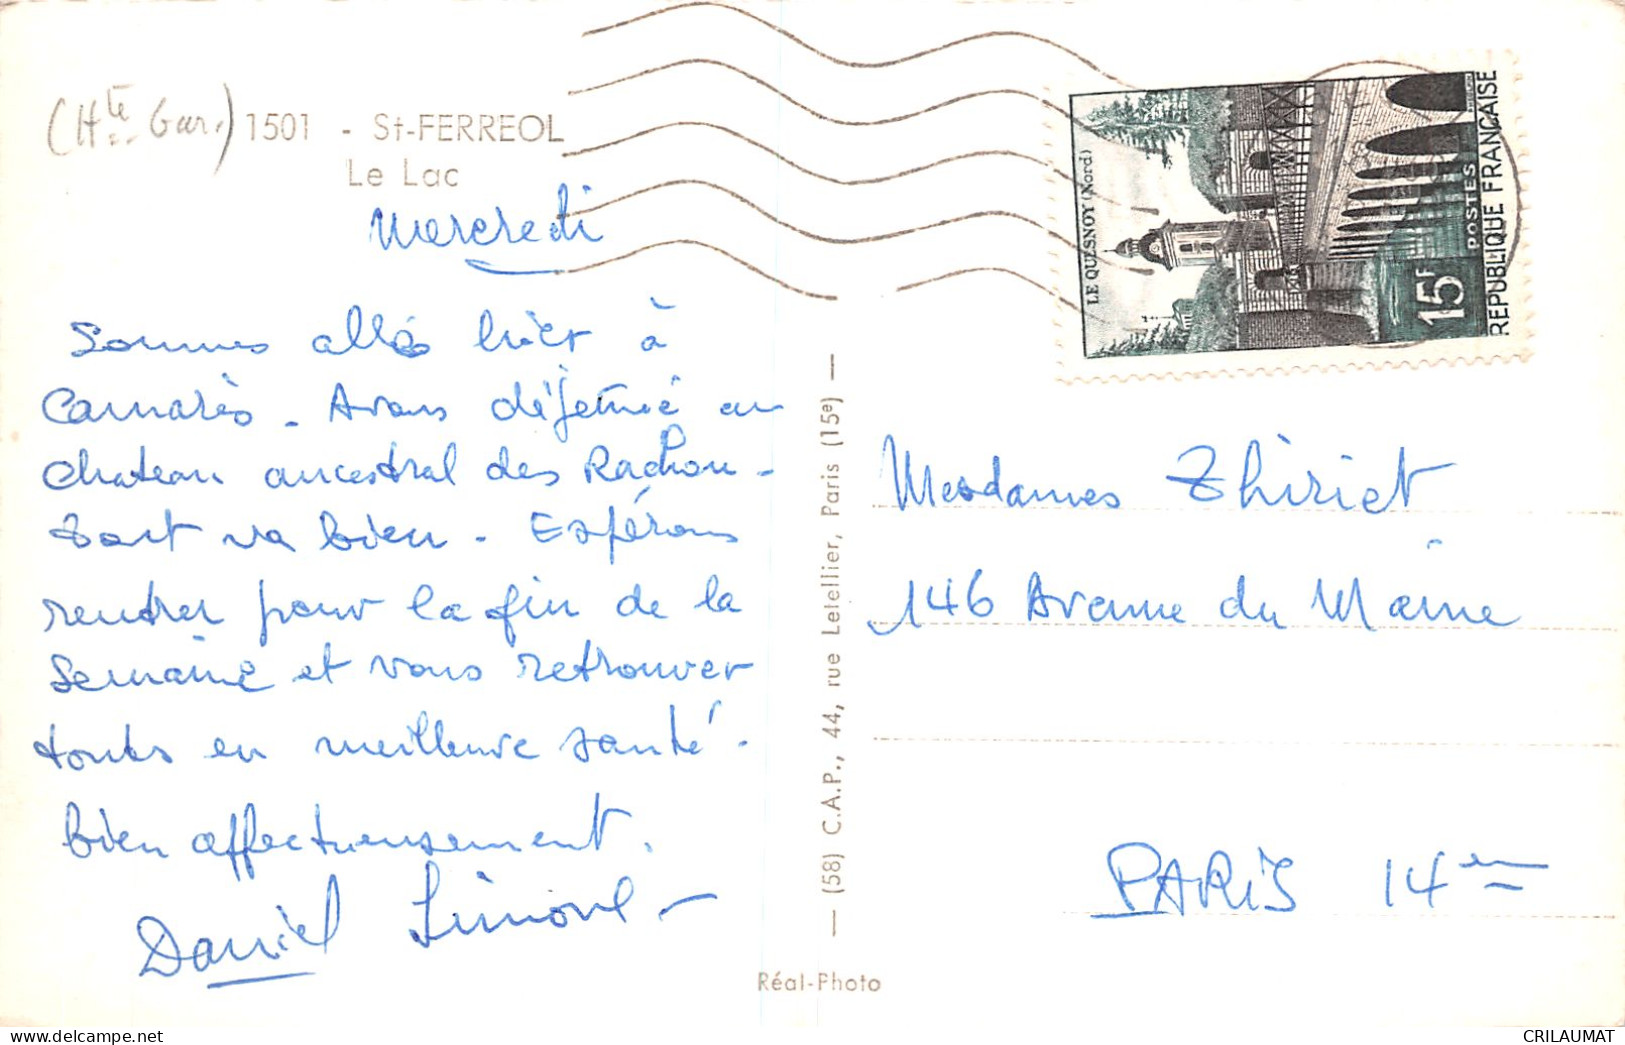 (Hte Gar.) 1501 - St-FERREOL
Le Lac
Mercredi
Sommes allés hier à
Camarès - Avons déjeuné au
chateau ancestral des Rachou -
tout va bien - Espérons
rentrer pour la fin de la
semaine et vous retrouver
toutes en meilleure santé -
bien affectueusement.
Daniel Simone -
— (58) C.A.P., 44, rue Letellier, Paris (15e) —
Réal-Photo
LE QUESNOY (Nord)
15F
POSTES
REPUBLIQUE FRANÇAISE
Mesdames Thiriet
146 Avenue du Maine
PARIS 14em
CRILAUMAT